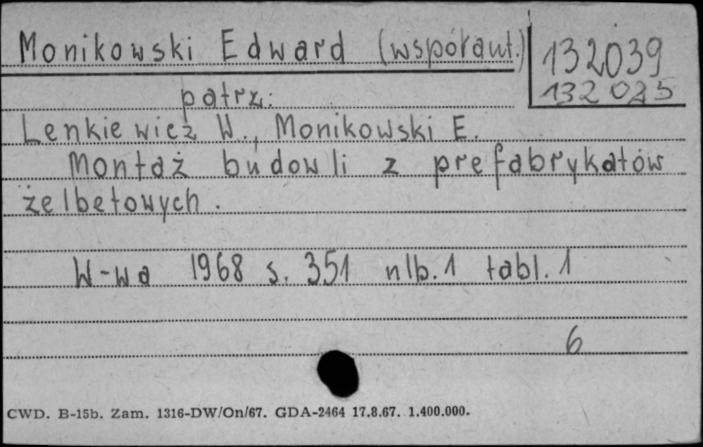 Monikowski Edward (współaut.)
132039
132025
patrz:
Lenkiewicz W., Monikowski E.
Montaż budowli z prefabrykatów
żelbetowych.
W-wa 1968 s. 351 nlb. 1 tabl. 1
6
CWD. B-15b. Zam. 1316-DW/On/67. GDA-2464 17.8.67. 1.400.000.